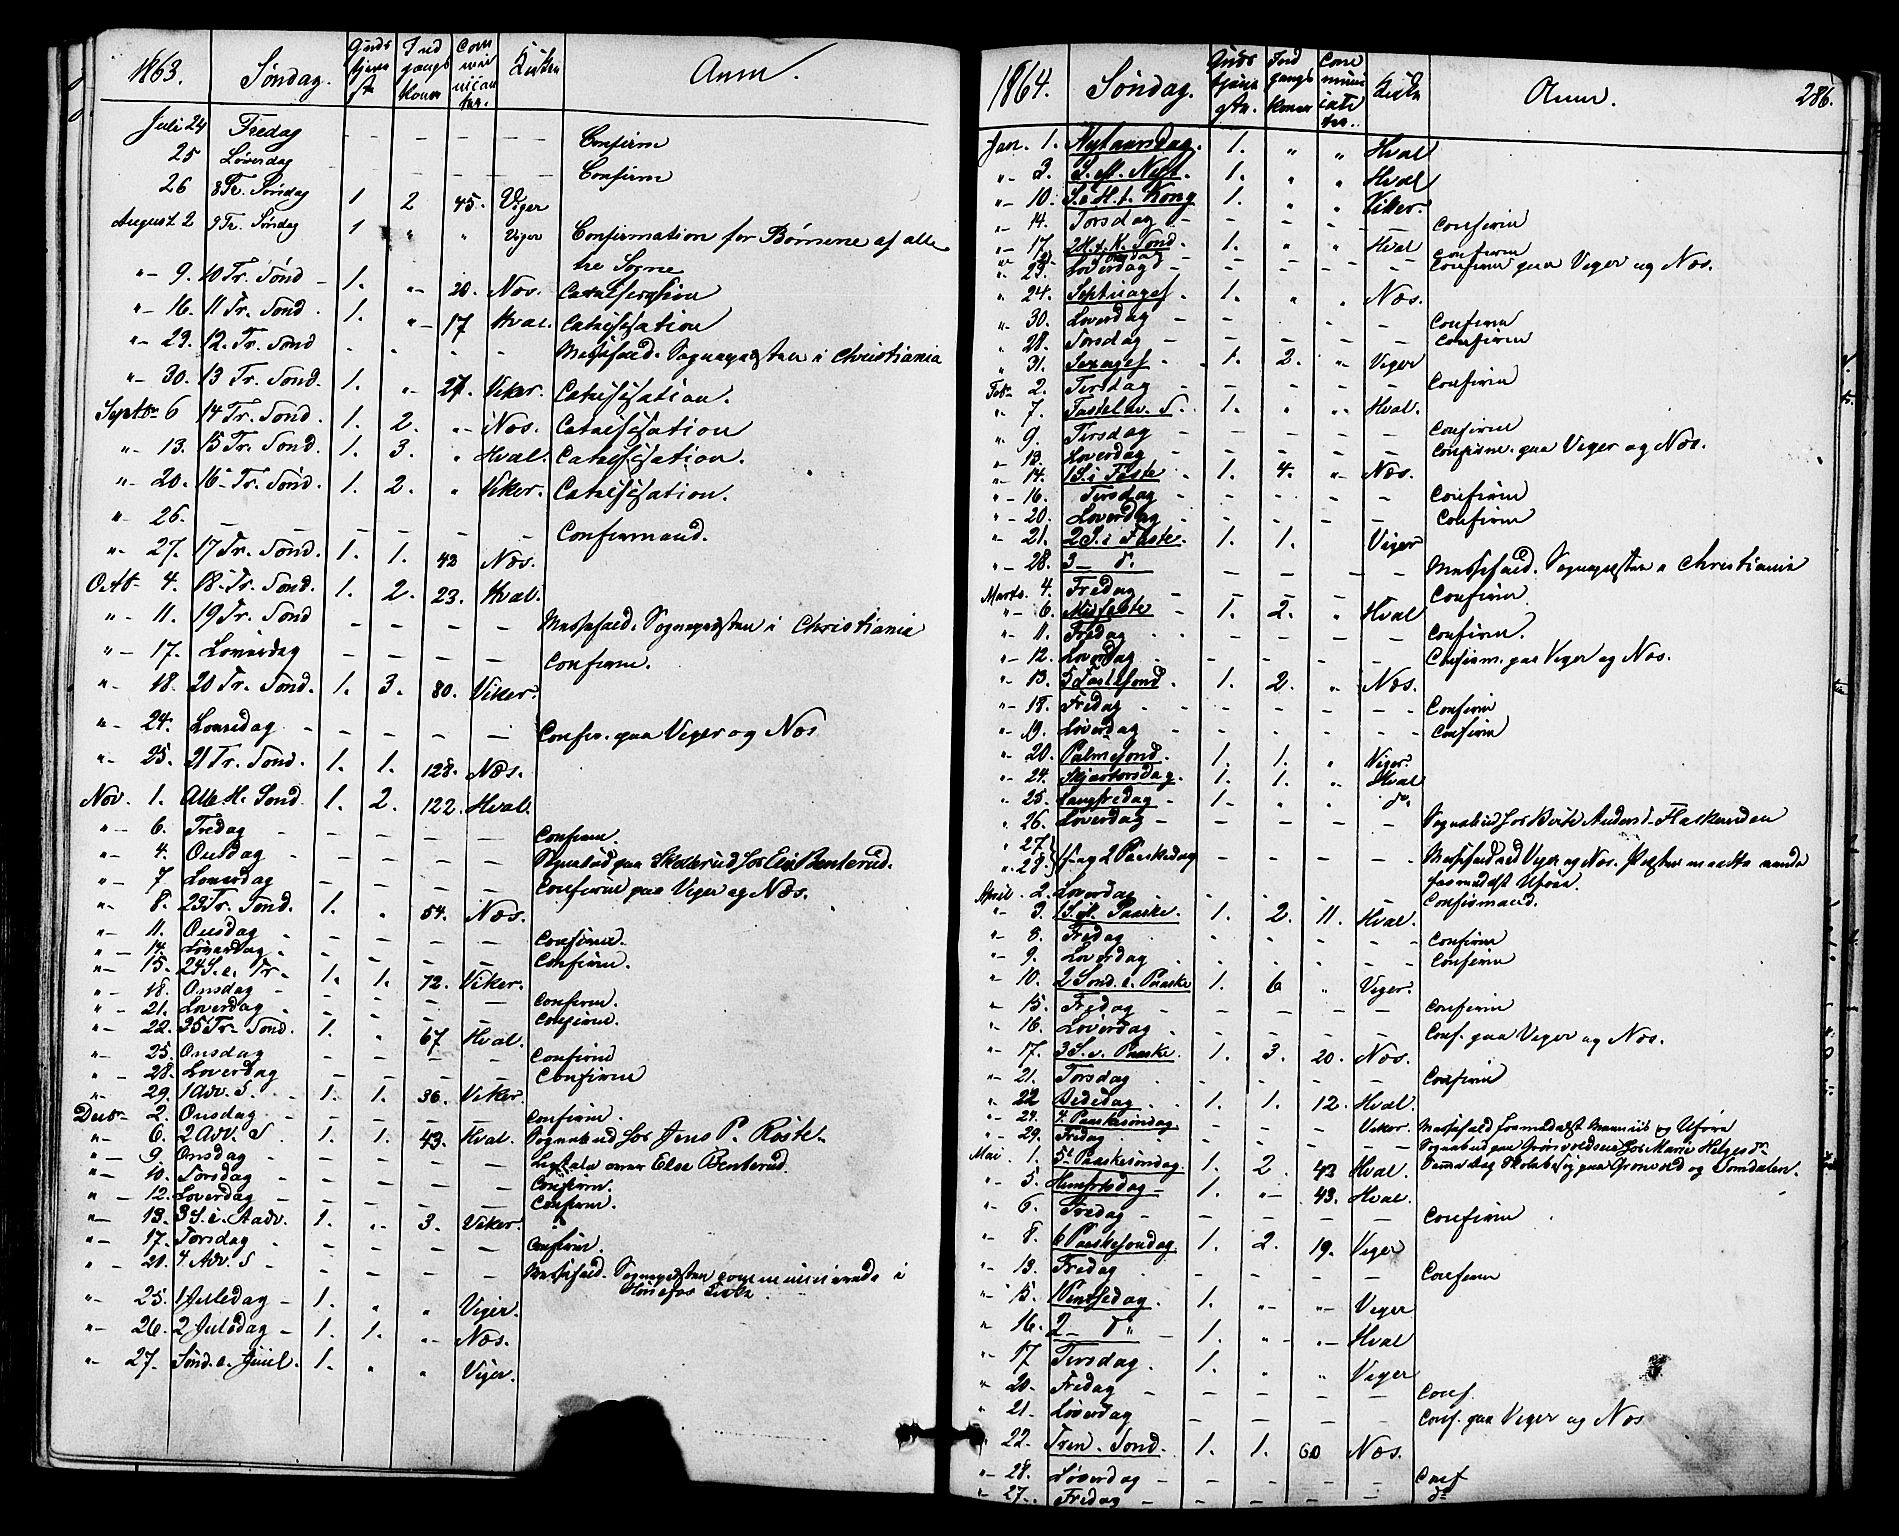 1863. Søndag. Guds tjene ste Ind gangs koner Com mu nican ter. Kirken Anm.
Juli 24 Fredag – – – – Confirm
25 Løverdag – – – – Confirm
26 8 Tr. Søndag 1 2 45. Viger
August 2 9 Tr. Søndag 1 " " Viger Confirmation for Børnene af alle
tre Sogne
"– 9. 10 Tr. Sønd – 1. "– 20. Næs. Catechisation
"– 16. 11 Tr. Sønd. 1. "– 17 Hval. Catechisation
"– 23. 12. Tr. Sønd – – – – Messefald. Sognepræsten i Christiania
"– 30. 13 Tr. Sønd. 1. "– 27. Viker. Catechisation.
Septbr 6 14 Tr. Sønd. 1. 2. "– Næs. Catechisation
"– 13. 15 Tr. Sønd. 1. 3. " Hval. Catechisation.
"– 20. 16 Tr. Sønd. 1. 2. " Viker. Catechisation.
"– 26. – – – – – Confirmand.
"– 27. 17 Tr. Sønd. 1. 1. 42 Næs.
Octb 4. 18 Tr. Sønd. 1. 2. 23. Hval.
"– 11. 19 Tr. Sønd – – – – Messefald. Sognepræsten i Christiania
"– 17. Løverdag – – – – Confirm.
"– 18. 20 Tr. Sønd. 1. 3. 80. Viker.
"– 24. Løverdag – – – – Confir. paa Viger og Næs
"– 25. 21 Tr. Sønd. 1. 1. 128. Næs.
Nov. 1. Alle H. Sønd 1. 2. 122. Hval.
"– 6. Fredag – – – – Confirm.
"– 4. Onsdag – – – – Sognebud paa hos Benterud.
"– 7 Løverdag – – – – Confirm paa Viger og Næs.
"– 8. 23 Tr. Sønd. 1. " 54. Næs.
"– 11. Onsdag – – – – Confirm.
"– 14. Løverdag – – – – Confirm.
"– 15. 24 S. e. Tr. 1. 1. 72. Viker.
"– 18. Onsdag – – – – Confirm.
"– 21. Løverdag – – – – Confirm.
"– 22. 25 Tr. Sønd. 1. " 67 Hval.
"– 25. Onsdag – – – – Confirm
"– 28. Løverdag – – – – Confirm
"– 29. 1 Adv. S. 1. 1. 36. Viker.
Decbr 2. Onsdag – – – – Confirm.
"– 6. 2 Adv. S 1. 1. 43. Hval. Sognebud hos Jens P. Røste.
"– 9. Onsdag – – – – Ligtale over Else Benterud.
"– 10. Torsdag – – – – Confirm.
"– 12. Løverdag – – – – Confirm.
"– 13. 3 S. i Aadv. 1. " 3. Viker.
"– 17. Torsdag – – – – Confirm.
"– 20. 4 Adv. S – – – – Messefald. Sognepræsten communicerede i
Hønefos Kirke
"– 25. 1 Juledag – 1. " " Viger.
"– 26. 2 Juledag – 1. 1. "– Næs.
"– 27. Sønd. e. Juul. 1. " " Viger.
1864. Søndag. Guds tjene ste. Ind gangs koner Com muni cante ter. Kirke Anm. 286.
Jan. 1. Nytaarsdag. 1. " " Hval
"– 3. S. e. Nyt. 1. " " Hval
"– 10. S. e. H. t. Kong 1. " " Viker.
"– 14. Torsdag – – – – Confirm
"– 17. 2 H. t. K. Sønd. 1. " " Hval Confirm
"– 23. Løverdag – – – – Confirm paa Viger og Næs.
" 24. Septuagef. 1. " " Næs.
" 30. Løverdag – – – – Confirm
" 28. Torsdag – – – – Confirm
" 31. Sexagef – 1. 2. "– Viger
Feb 2. Tirsdag – – – – Confirm
"– 7. Fastelav. S. 1. " " Hval.
" 9. Tirsdag – – – – Confirm
"– 13. Løverdag – – – – Confirm. paa Viger og Næs.
"– 14. 1 S. i Faste 1. 4. "– Næs.
"– 16. Tirsdag – – – – Confirm
"– 20. Løverdag – – – – Confirm
"– 21. 2 S. i Faste. 1. 1. Viger
"– 28. 3 – d. – – – – Messefald. Sognepræsten i Christiania
Marts. 4. Fredag – – – – Confirm.
"– 6. Midfaste – 1. 2. " Hval
"– 11. Fredag – – – – Confirm.
"– 12. Løverdag – – – – Confirm. paa Viger og Næs.
"– 13. 5 Fastesond. 1. 2. " Næs.
"– 18. Fredag – – – – Confirm
"– 19. Løverdag – – – – Confirm
"– 20 Palmesond. 1. 1. " Viger.
"– 24. Skjærtorsdag. 1. 1. " Hval
"– 25. Langfredag – 1– " " do
" 26. Løverdag – – – – – Sognebud hos Berte Anders.
" 27 }
"– 28. } 1– og 2 Paaskedag – – – – Messefald ved Viger og Næs. Præsten maatte vende
formedelst Uføre.
April. 2. Løverdag – – – – Confirmand.
"– 3. 1 S. e. Paaske. 1. 2. 11. Hval.
"– 8. Fredag – – – – Confirm
"– 9. Løverdag – – – – Confirm
"– 10. 2 Sond. e. Paaske 1. 6 " Viger.
"– 15. Fredag – – – – Confirm
"– 16. Løverdag – – – – Conf. paa Viger og Næs.
"– 17. 3 S. e. Paaske. 1. 3. 20. Næs.
"– 21. Torsdag – – – – Confirm
"– 22 Bededag. 1. 1. 12. Hval.
"– 24. 4. Paaskesøndag Viker. Messefald formedelst og Uføre
"– 29. Fredag – – – – Sognebud paa Grønvoldseie hos Marie Helgesdr
Mai 1. 5t Paaskesøndag. 1. 2. 42 Hval. Samme dag Skolebesøg paa Grønvold og Somdalen.
"– 5. Himfrtsdag – 1. "– 43. Hval.
"– 6. Fredag – – – – Confirm
"– 8. 6 Paaskesondag. 1. 2. 19. Viger
"– 13. Fredag – – – – Confirm
"– 15. 1 Pintsedag. 1. "– "– Viger
" 16. 2 – do – 1. " "– Hval
"– 17 Tirsdag. 1. " " Viger
" 20. Fredag – – – – Conf.
" 21. Løverdag – – – – Conf. paa Viger og Næs
"– 22. Trin. Sond. 1. 1. 60 Næs.
"– 28. Løverdag – – – – Conf
"– 27. Fredag – – – – do